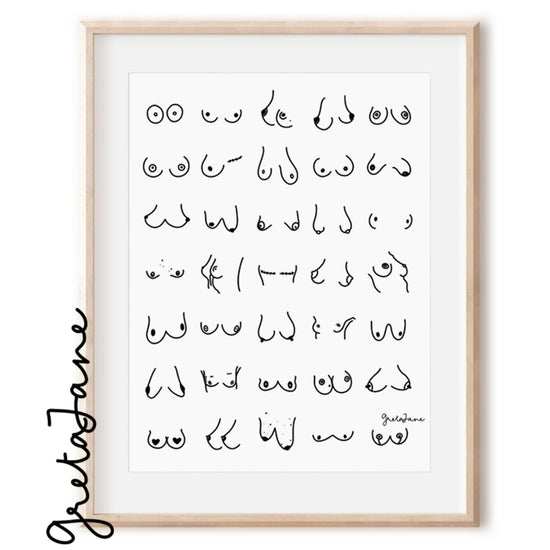 gretaJane
gretaJane